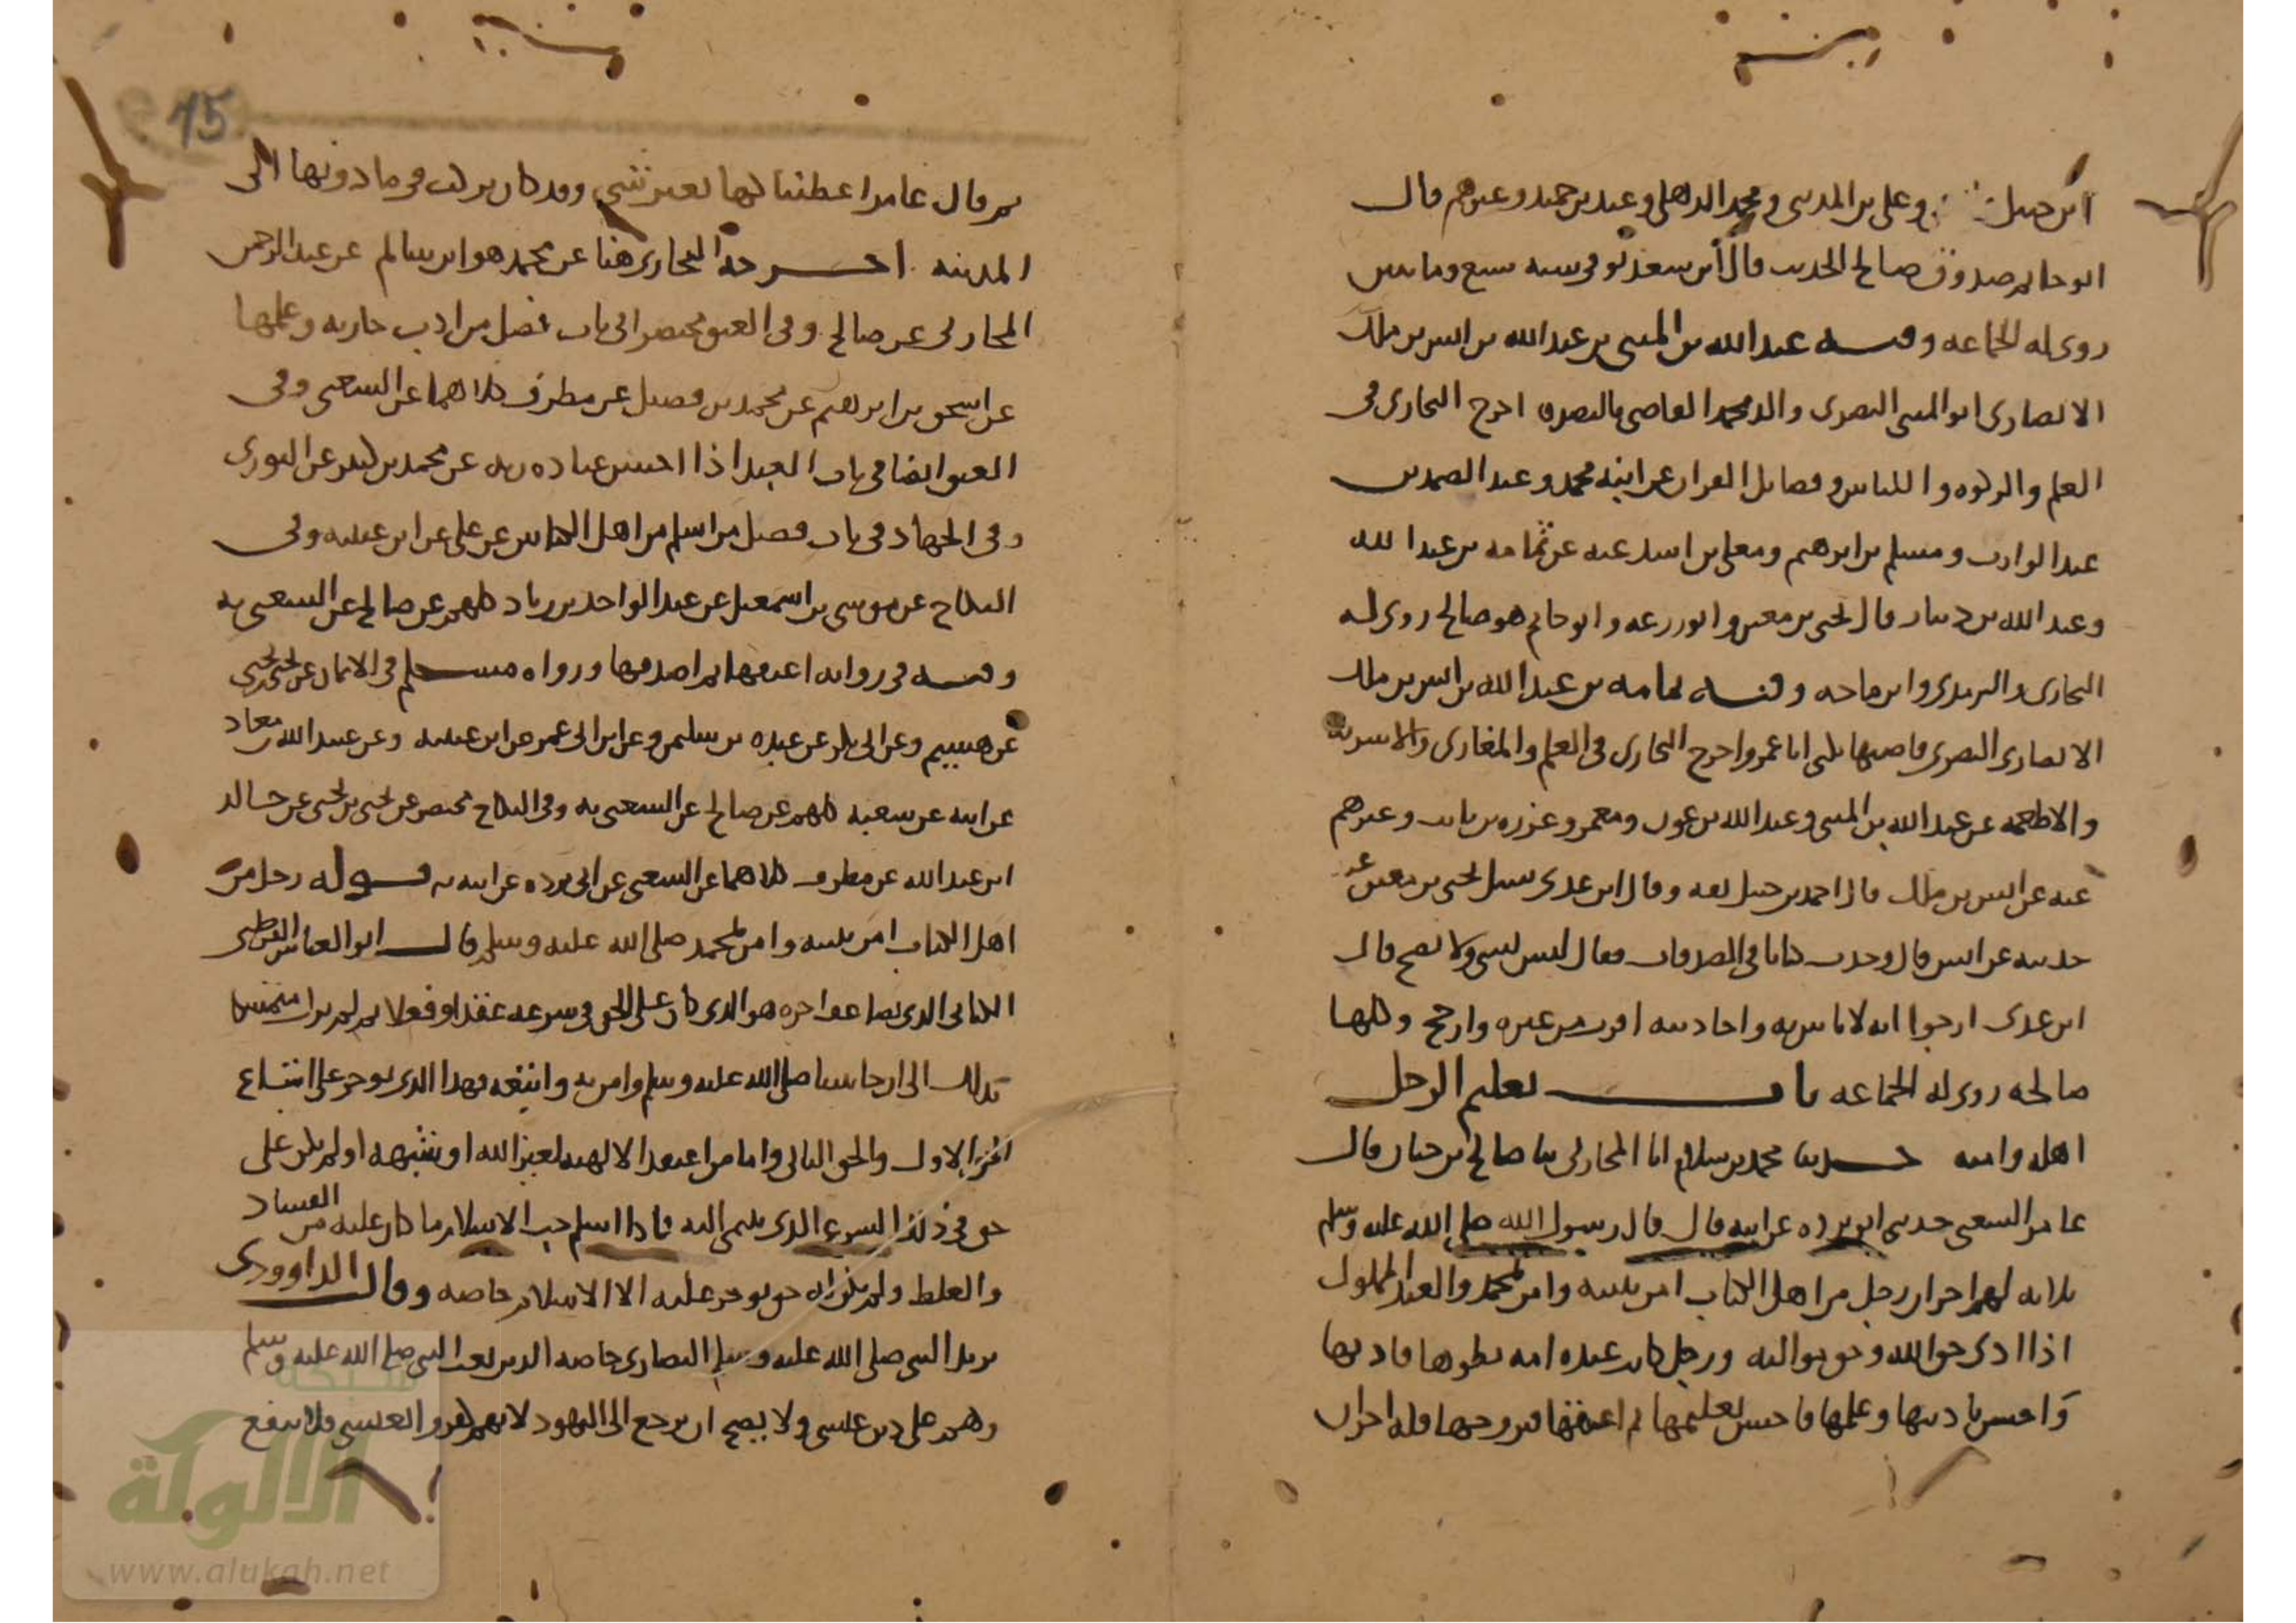 ابن حنبل وعلي بن المديني ومحمد الذهلي وعبد بن حميد وغيرهم قال
ابو حاتم صدوق صالح الحديث قال ابن سعد توفي سنة سبع وماتين
روى له الجماعة وفيه عبد الله بن المثنى بن عبد الله بن انس بن ملك
الانصاري ابو المثنى البصري والد محمد القاضي بالبصرة اخرج البخاري في
العلم والزكوة واللباس وفضايل القران عن ابنه محمد وعبد الصمد بن
عبد الوارث ومسلم بن ابرهيم ومعلى بن اسد عنه عن ثمامة بن عبد الله
وعبد الله بن دينار قال يحيى بن معين وابو زرعة وابو حاتم هو صالح روى له
البخاري والترمذي وابن ماجه وفيه ثمامة بن عبد الله بن انس بن ملك
الانصاري البصري قاضيها يكنى ابا عمرو اخرج البخاري في العلم والمغازي والاشربة
والاطعمة عن عبد الله بن المثنى وعبد الله بن عون ومعمر وعزرة بن ثابت وغيرهم
عنه عن انس بن ملك قال احمد بن حنبل ثقة وقال ابن عدي سيل يحيى بن معين عن
حديثه عن انس قال وجدت كتابا في الصدقات فقال ليس بشي ولا يصح قال
ابن عدي ارجوا انه لا باس به واحاديثه اقرب من غيره وارجح وكلها
صالحة روى له الجماعة باب تعليم الرجل
اهله وامته حدثنا محمد بن سلام انا المحاربي ثنا صالح بن حيان قال
عامر الشعبي حدثني ابو بردة عن ابيه قال قال رسول الله صلى الله عليه وسلم
ثلاثة لهم اجران رجل من اهل الكتاب امن بنبيه وامن بمحمد والعبد المملوك
اذا ادى حق الله وحق مواليه ورجل كانت عنده امة يطوها فادبها
فاحسن تاديبها وعلمها فاحسن تعليمها ثم اعتقها فتزوجها فله اجران
15
ثم قال عامر اعطيناكها بغير شي وقد كان يركب فيما دونها الى
المدينة اخرجه البخاري هنا عن محمد هو ابن سالم عن عبد الرحمن
المحاربي عن صالح وفي العتق مختصرا في باب فضل من ادب جاريته وعلمها
عن اسحق بن ابرهيم عن محمد بن فضيل عن مطرف كلاهما عن الشعبي وفي
العتق ايضا في باب العبد اذا احسن عبادة ربه عن محمد بن كثير عن الثوري
وفي الجهاد في باب فضل من اسلم من اهل الكتابين عن علي عن ابن عيينه وفي
النكاح عن موسى بن اسمعيل عن عبد الواحد بن زياد كلهم عن صالح عن الشعبي به
وفيه في رواية اعتقها ثم اصدقها ورواه مسلم في الايمان عن يحيى بن يحيى
عن هشيم وعن ابي بكر عن عبدة بن سليمن وعن ابن ابي عمر عن ابن عيينه وعن عبيد الله بن معاذ
عن ابيه عن شعبه كلهم عن صالح عن الشعبي به وفي النكاح مختصر عن يحيى بن يحيى عن خالد
ابن عبد الله عن مطرف كلاهما عن الشعبي عن ابي بردة عن ابيه به قوله رجل من
اهل الكتاب امن بنبيه وامن بمحمد صلى الله عليه وسلم قال ابو العباس القرطبي
الكتابي الذي يضاعف اجره هو الذي كان على الحق في شرعه عقدا وفعلا ثم لم يزل متمسكا
بذلك الى ان جا نبينا صلى الله عليه وسلم وامن به واتبعه فهذا الذي يوجر على اتباع
الحق الاول والحق الثاني واما من اعتقد الالهية لغير الله او شبهه او لم يكن على
حق في ذلك الشرع الذي ينتمي اليه فاذا اسلم جب الاسلام ما كان عليه من الفساد
والغلط ولم يكن له حق يوجر عليه الا الاسلام خاصة وقال الداوودي
يريد النبي صلى الله عليه وسلم النصارى خاصة الذين بعث النبي صلى الله عليه وسلم
وهم على دين عيسى ولا يصح ان يرجع الى اليهود لانهم كفروا بعيسى فلا ينفع
شبكة
الألوكة
www.alukah.net